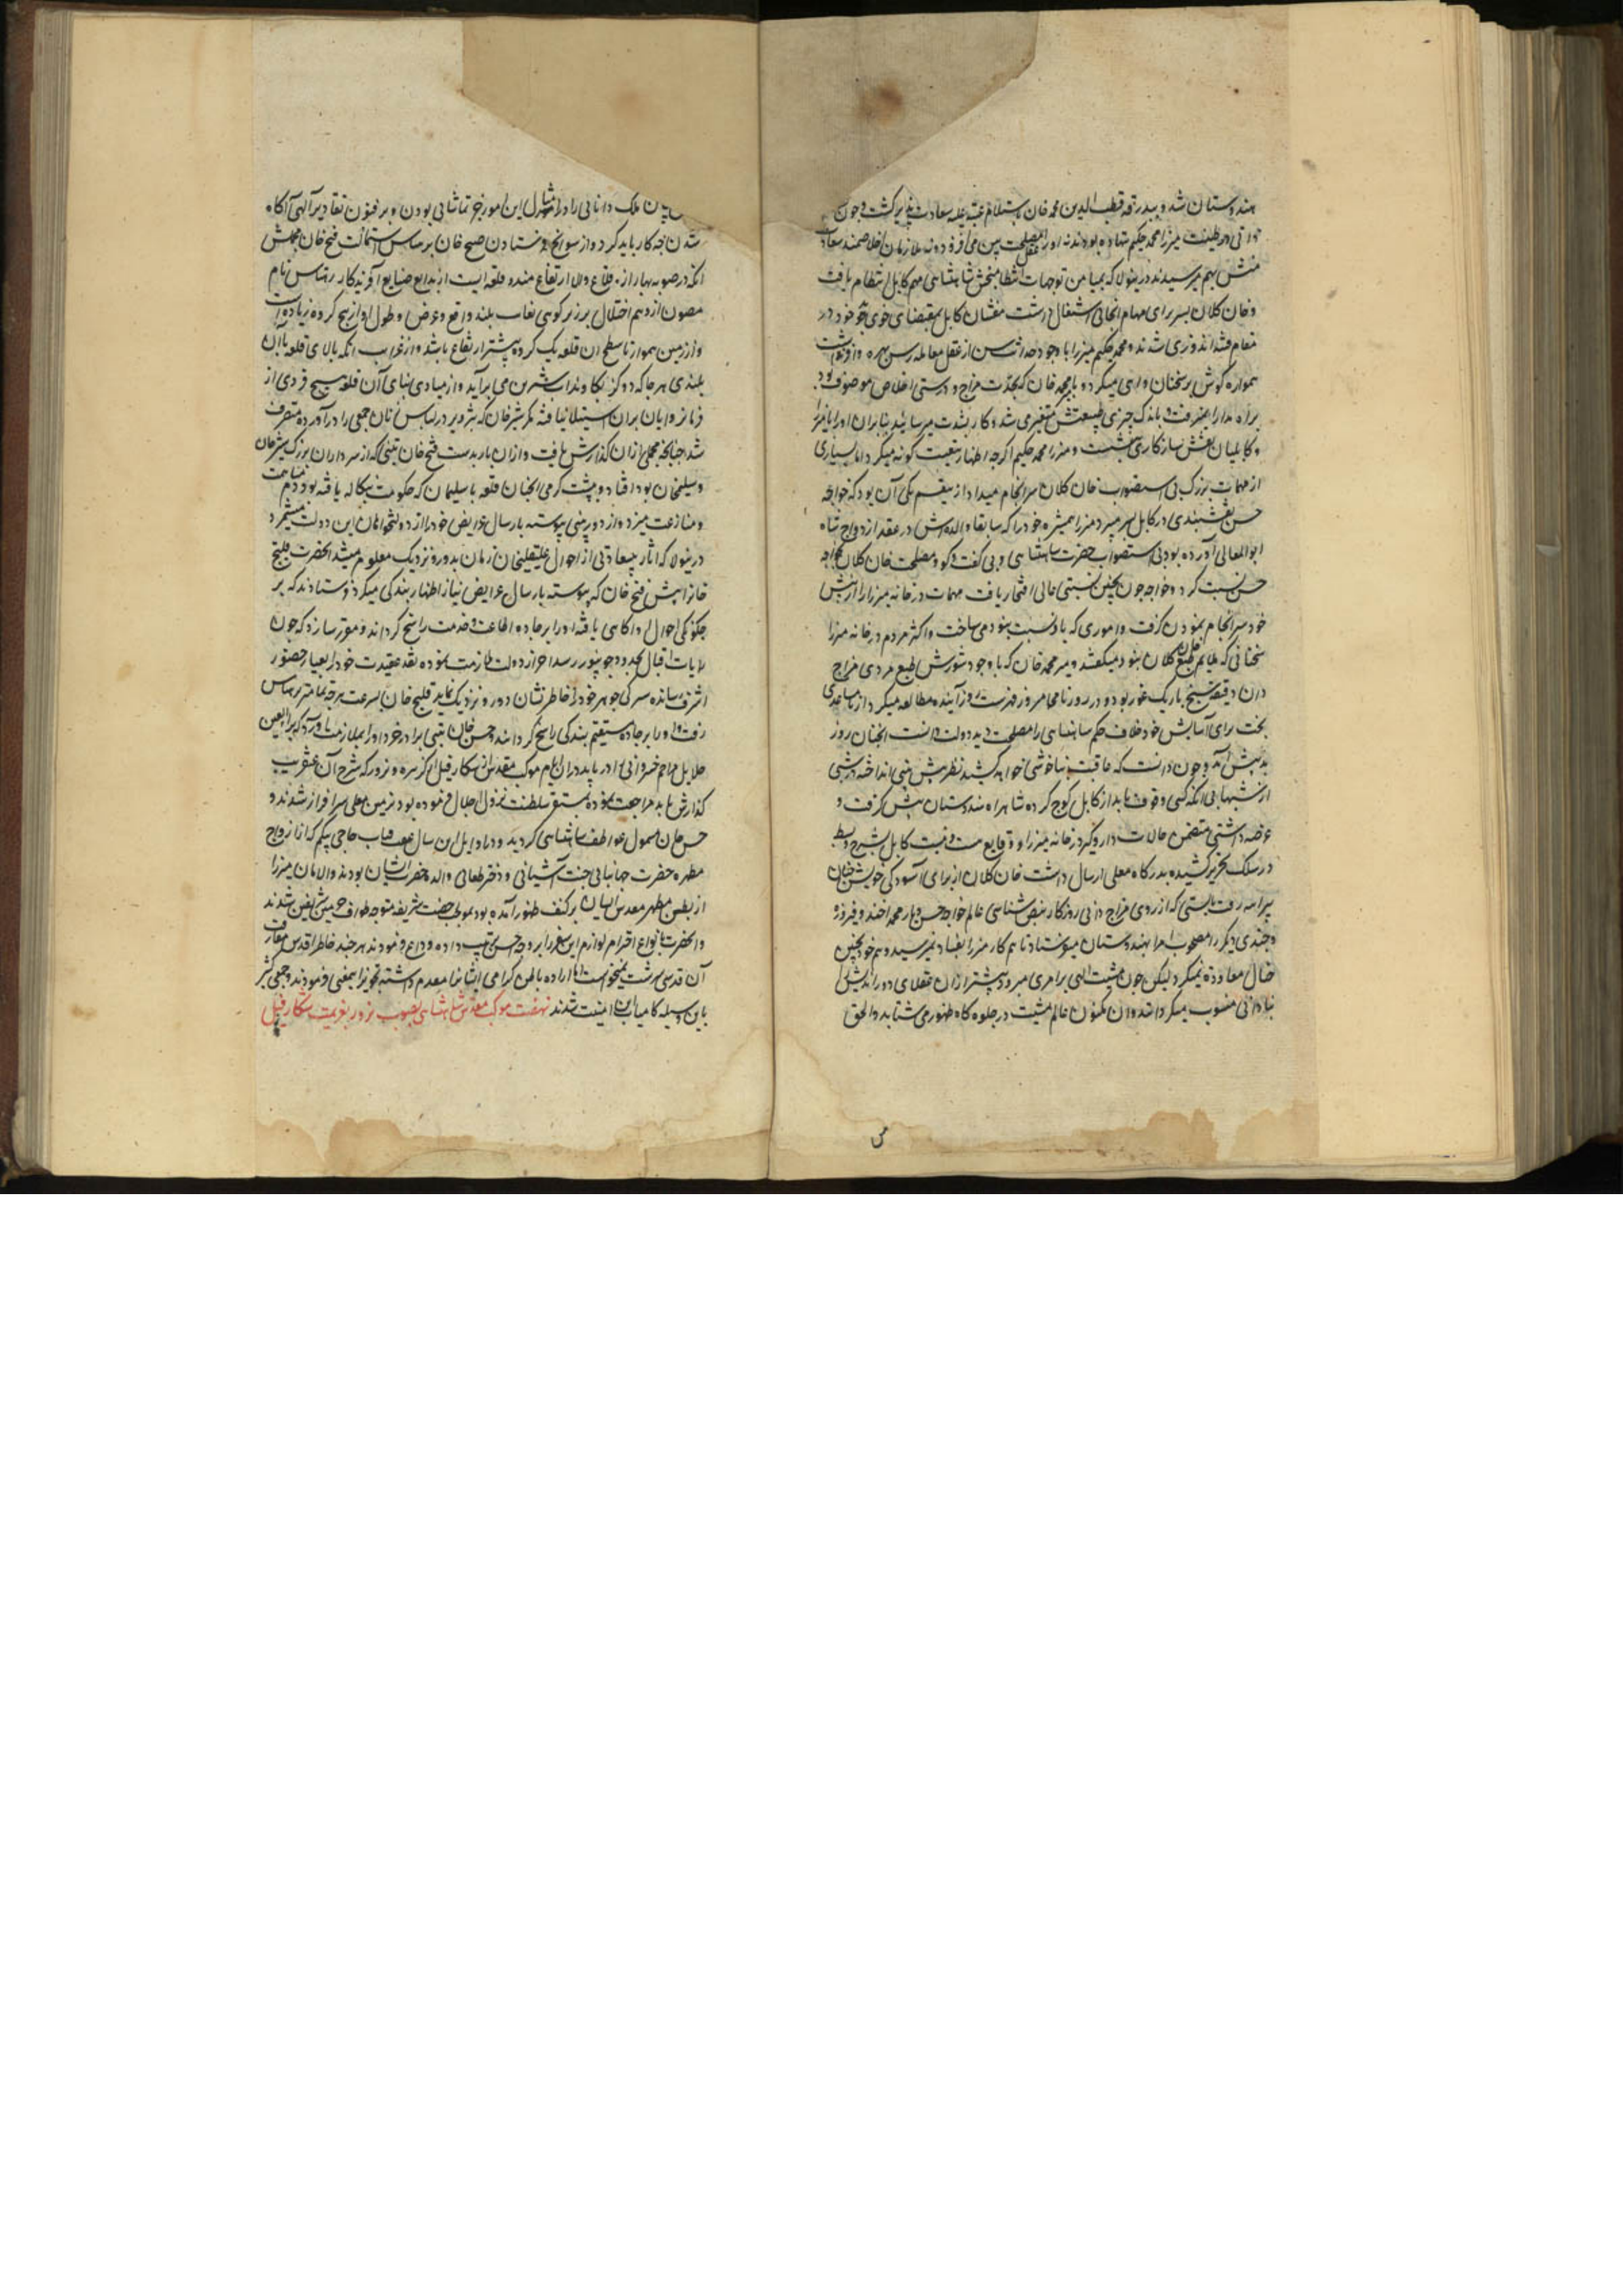 هندوستان شد و ببدرقه قطب الدین محمد خان باستلام عتبه علیه سعادت پذیر گشت و چون
در طینت میرزا محمد حکیم نهاده بودند نه اورا عقل مصلحت بین می افزود و نه ملازمان اخلاصمند سعادت
منش بهم میرسیدند درینولا که بمیامن توجهات انتظام بخش شاهنشاهی مهم کابل انتظام یافت
و خان کلان بسربراهی مهام انجائی اشتغال داشت مفتنان کابل بمقتضای خوی خود در
مقام فتنه اندوزی شدند و محمد حکیم میرزا با وجود حداثت سن از عقل معامله رس بهره وافر نداشت
همواره گوش بر سخنان واهی میکرد و میر محمد خان که بحدت مزاج و درستی اخلاص موصوف بود
براه مدارا نمیرفت و باندک چیزی طبیعتش متغیر می شد و کار بشدت میرسانید بنابران اورا با میرزا
و کابلیان نقش سازگاری ننشست و میرزا محمد حکیم اگرچه اظهار تبعیت گونه میکرد اما بسیاری
از مهمات بزرگ بی استصواب خان کلان سرانجام میداد ازینقسم یکی آن بود که خواجه
حسن نقشبندی در کابل بسر میبرد میرزا همشیره خود را که سابقا والده اش در عقد ازدواج شاه
ابوالمعالی آورده بود بی استصواب حضرت شاهنشاهی و بی گفت و گو و مصلحت خان کلان بخواجه
حسن نسبت کرد و خواجه چون بچنین نسبتی عالی افتخار یافت مهمات در خانه میرزا را از پیش
خود سرانجام نمودن گرفت و اموری که باو نسبت نبود می ساخت و اکثر مردم در خانه میرزا
سخنانی که ملایم طبع خان کلان نبود میگفتند و میر محمد خان که با وجود شورش طبع مردی مزاج
دان دقیقه سنج باریک غور بود و در روزنامچه امروز فهرست روز آینده مطالعه میکرد از نامساعدی
بخت برای آسایش خود خلاف حکم شاهنشاهی را مصلحت دید دولت دانست انچنان روز
بد پیش آمد و چون دانست که عاقبت بناخوشی خواهد کشید نظر پیش بینی انداخته در شبی
از شبها بی آنکه کسی وقوف یابد از کابل کوچ کرده شاهراه هندوستان پیش گرفت و
عرضه داشتی متضمن حالات دار و گیر در خانه میرزا و وقایع کابل بشرح و بسط
در سلک تحریر کشیده بدرگاه معلی ارسال داشت خان کلان از برای آسودگی خویش چنان
بیراهه رفت بایستی که از روی مزاج دانی روزگار و نبض شناسی عالم خواجه حسن و یار محمد آخند و فیروز
و چندی دیگر را مصحوب امرا بهندوستان میفرستاد تا هم کار میرزا بفساد نمیرسید و هم خود بچنین
حال معاودت نمیکرد لیکن چون مشیت الهی بر امری میرود پیشتر ازان عقلای دوراندیش را
بنادانی منسوب میگردانند و ان مکنون عالم مشیت در جلوه گاه ظهور می شتابد و الحق
س
ملک دانائی را در امثال این امور جز تماشائی بودن و بر فنون تقادیر الهی آگاه
شدن چه کار باید کرد و از سوانح فرستادن خان بر رهتاس باستمالت فتح خان مجملش
آنکه در صوبه بهار از قلاع والا ارتفاع هندو قلعه ایست از بدایع صنایع آفریدگار رهتاس نام
مصون از وهم اختلال بر زبر کوهی بغایت بلند واقع و عرض و طول او از پنج کروه زیاده است
و از زمین هموار تا سطح ان قلعه یک کروه بیشتر ارتفاع باشد و از غرایب آنکه بالای قلعه باآن
بلندی هرجا که دو گز بکاوند آب شیرین می برآید و از مبادی بنای آن قلعه هیچ فردی از
فرمانروایان بران استیلا نیافته مگر شیرخان که بتزویر در لباس زنان جمعی را درآورده متصرف
شد چنانچه مجملی ازان گذارش یافت و ازان باز بدست فتح خان تبنی که از سرداران بزرگ شیرخان
و سلیمخان بود افتاد و بپشت گرمی انچنان قلعه با سلیمان که حکومت بنگاله یافته بود دم مخاصمت
و منازعت میزد و از دوربینی پیوسته بارسال عرایض خود را از دولتخواهان این دولت میشمرد
درینولا که اثار بیسعادتی از احوال علیقلیخان زمان بدور و نزدیک معلوم میشد انحضرت قلیج
خانرا پیش فتح خان که پیوسته بارسال عرایض نیاز اظهار بندگی میکرد فرستادند که بر
چگونگی احوال او آگاهی یافته اورا بر جاده اطاعت و خدمت راسخ گرداند و مقرر سازد که چون
رایات اقبال بحدود جونپور رسد احراز دولت ملازمت نموده نقد عقیدت خود را بعیار حضور
اشرف رسانده سرگی جوهر خود را خاطر نشان دور و نزدیک نماید قلیج خان بسرعت هرچه تمامتر برهتاس
رفت و اورا بر جاده مستقیم بندگی راسخ گردانید حسن خان تبنی برادر خرد اورا بملازمت آورد که براهین
جلایل مراحم خسروانی را دریابد دران ایام موکب مقدس از شکار فیل از نرور که شرح آن عنقریب
گذارش یابد مراجعت نموده بمستقر سلطنت نزول اجلال فرموده بود بزمین بوس معلی سرافراز شدند و
حسن خان مشمول عواطف شاهنشاهی گردید و در اوایل این سال عفت قباب حاجی بیگم که از ازواج
مطهره حضرت جهانبانی جنت آشیانی و دختر طغائی والده حضرت ایشان بودند و الامان میرزا
از بطن مطهر مقدس ایشان بر کنف ظهور آمده بود بموجب رخصت شریفه متوجه طواف حرمین شریفین شدند
و انحضرت بانواع احترام لوازم این سفر را بر وجه احسن ترتیب داده وداع فرمودند هرچند خاطر اقدس مفارقت
آن قدسی سرشت نمیخواست اما اراده باطن گرامی ایشانرا مقدم داشته تجویز اینمعنی فرمودند و جمعی کثیر
باین وسیله کامیاب این امنیت شدند نهضت موکب مقدس شاهنشاهی بصوب نرور بعزیمت شکار فیل